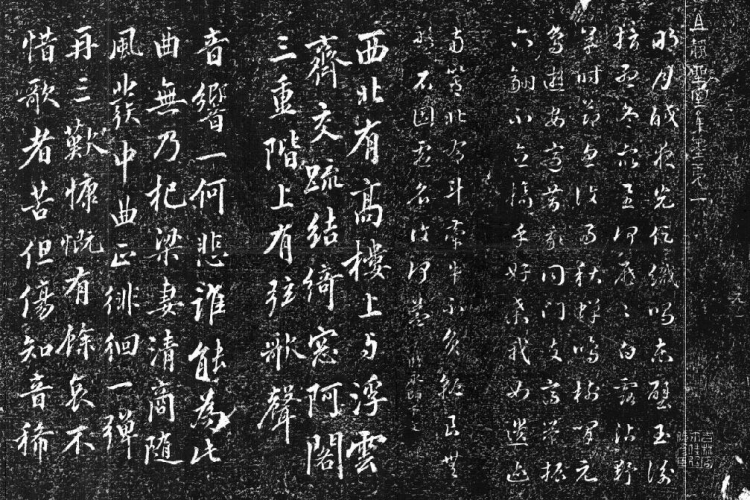 明月皎夜光促織鳴東壁玉衡
指孟冬衆星何歷〻白露沾野
草時節忽復易秋蟬鳴樹間玄
鳥逝安適昔我同門友高舉振
六翮不念攜手好棄我如遺迹
南箕北有斗牽牛不負軛良無
盤石固虛名復何益
西北有高樓上与浮雲
齊交疏結綺窓阿閣
三重階上有弦歌聲
音響一何悲誰能為此
曲無乃杞梁妻清商隨
風發中曲正徘徊一彈
再三歎慷慨有餘哀不
惜歌者苦但傷知音稀